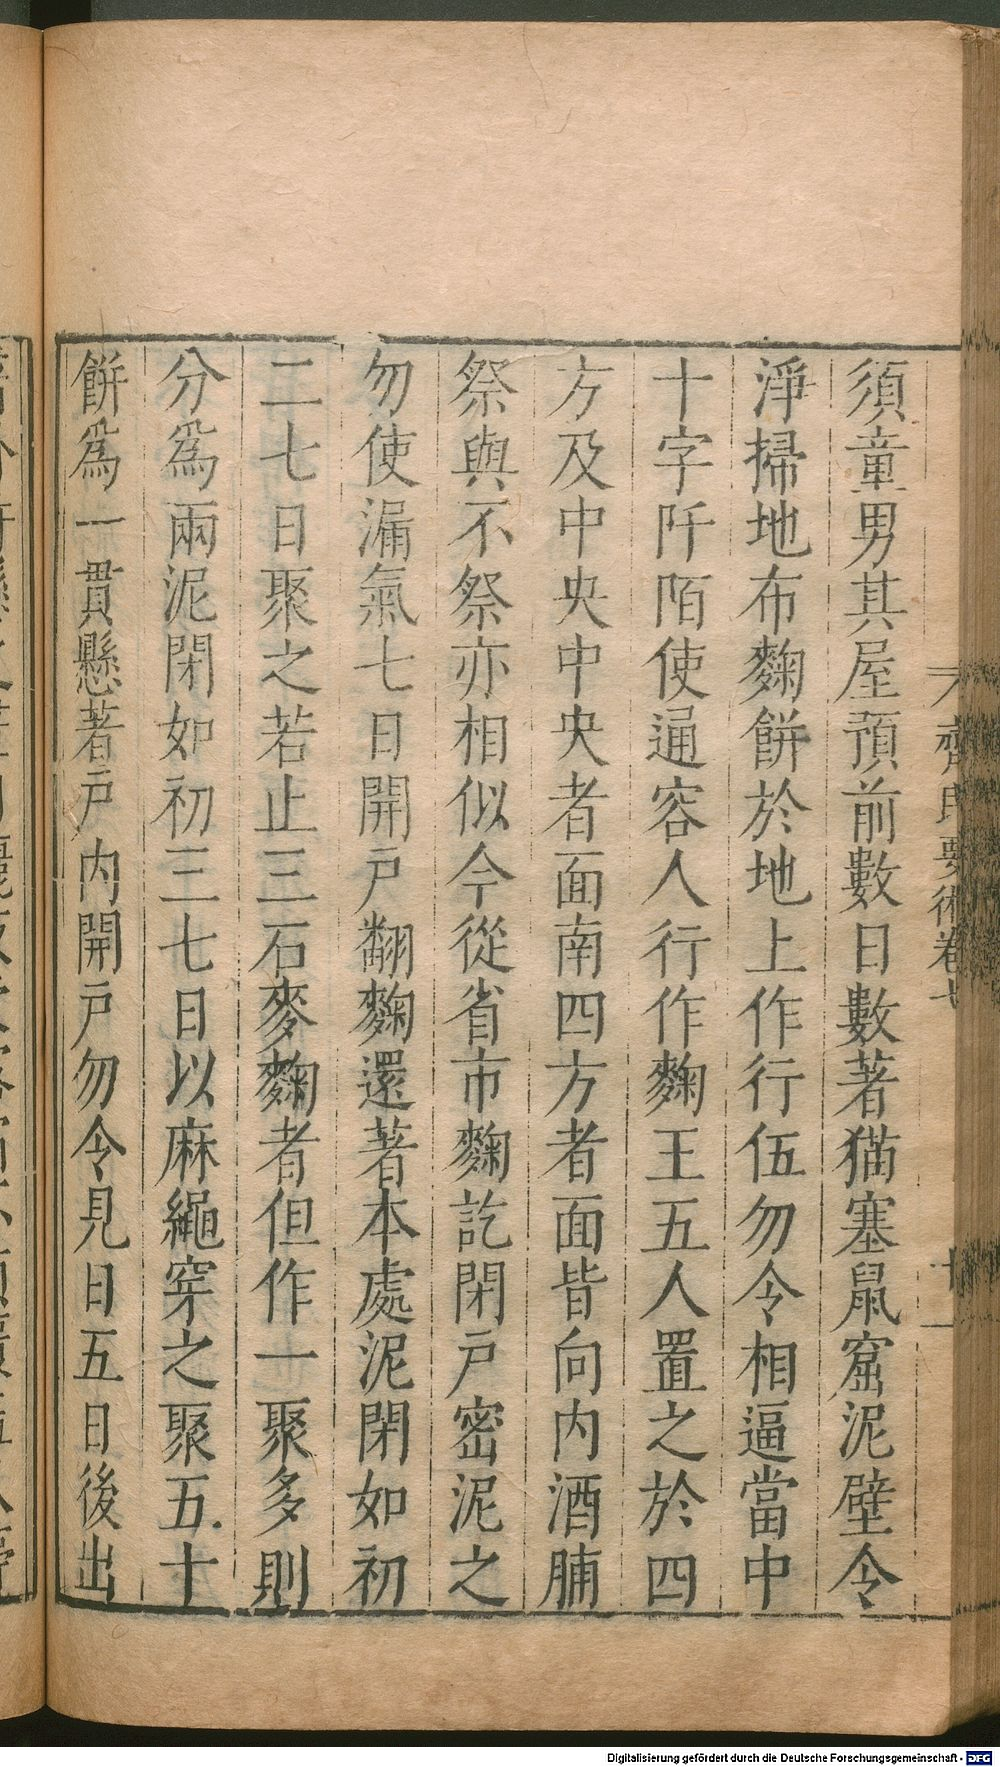 須童男其屋預前數日數著猫塞鼠窟泥壁令
淨掃地布麴餅於地上作行伍勿令相逼當中
十字阡陌使通容人行作麴王五人置之於四
方及中央中央者面南四方者面皆向内酒脯
祭與不祭亦相似今從省市麴訖閉戸密泥之
勿使漏氣七日開戸翻麴還著本處泥閉如初
二七日聚之若止三石麥麴者但作一聚多則
分爲兩泥閉如初三七日以麻繩穿之聚五十
餅爲一貫懸著戸内開戸勿令見日五日後出
齊民要術卷七
十一
Digitalisierung gefördert durch die Deutsche Forschungsgemeinschaft - DFG